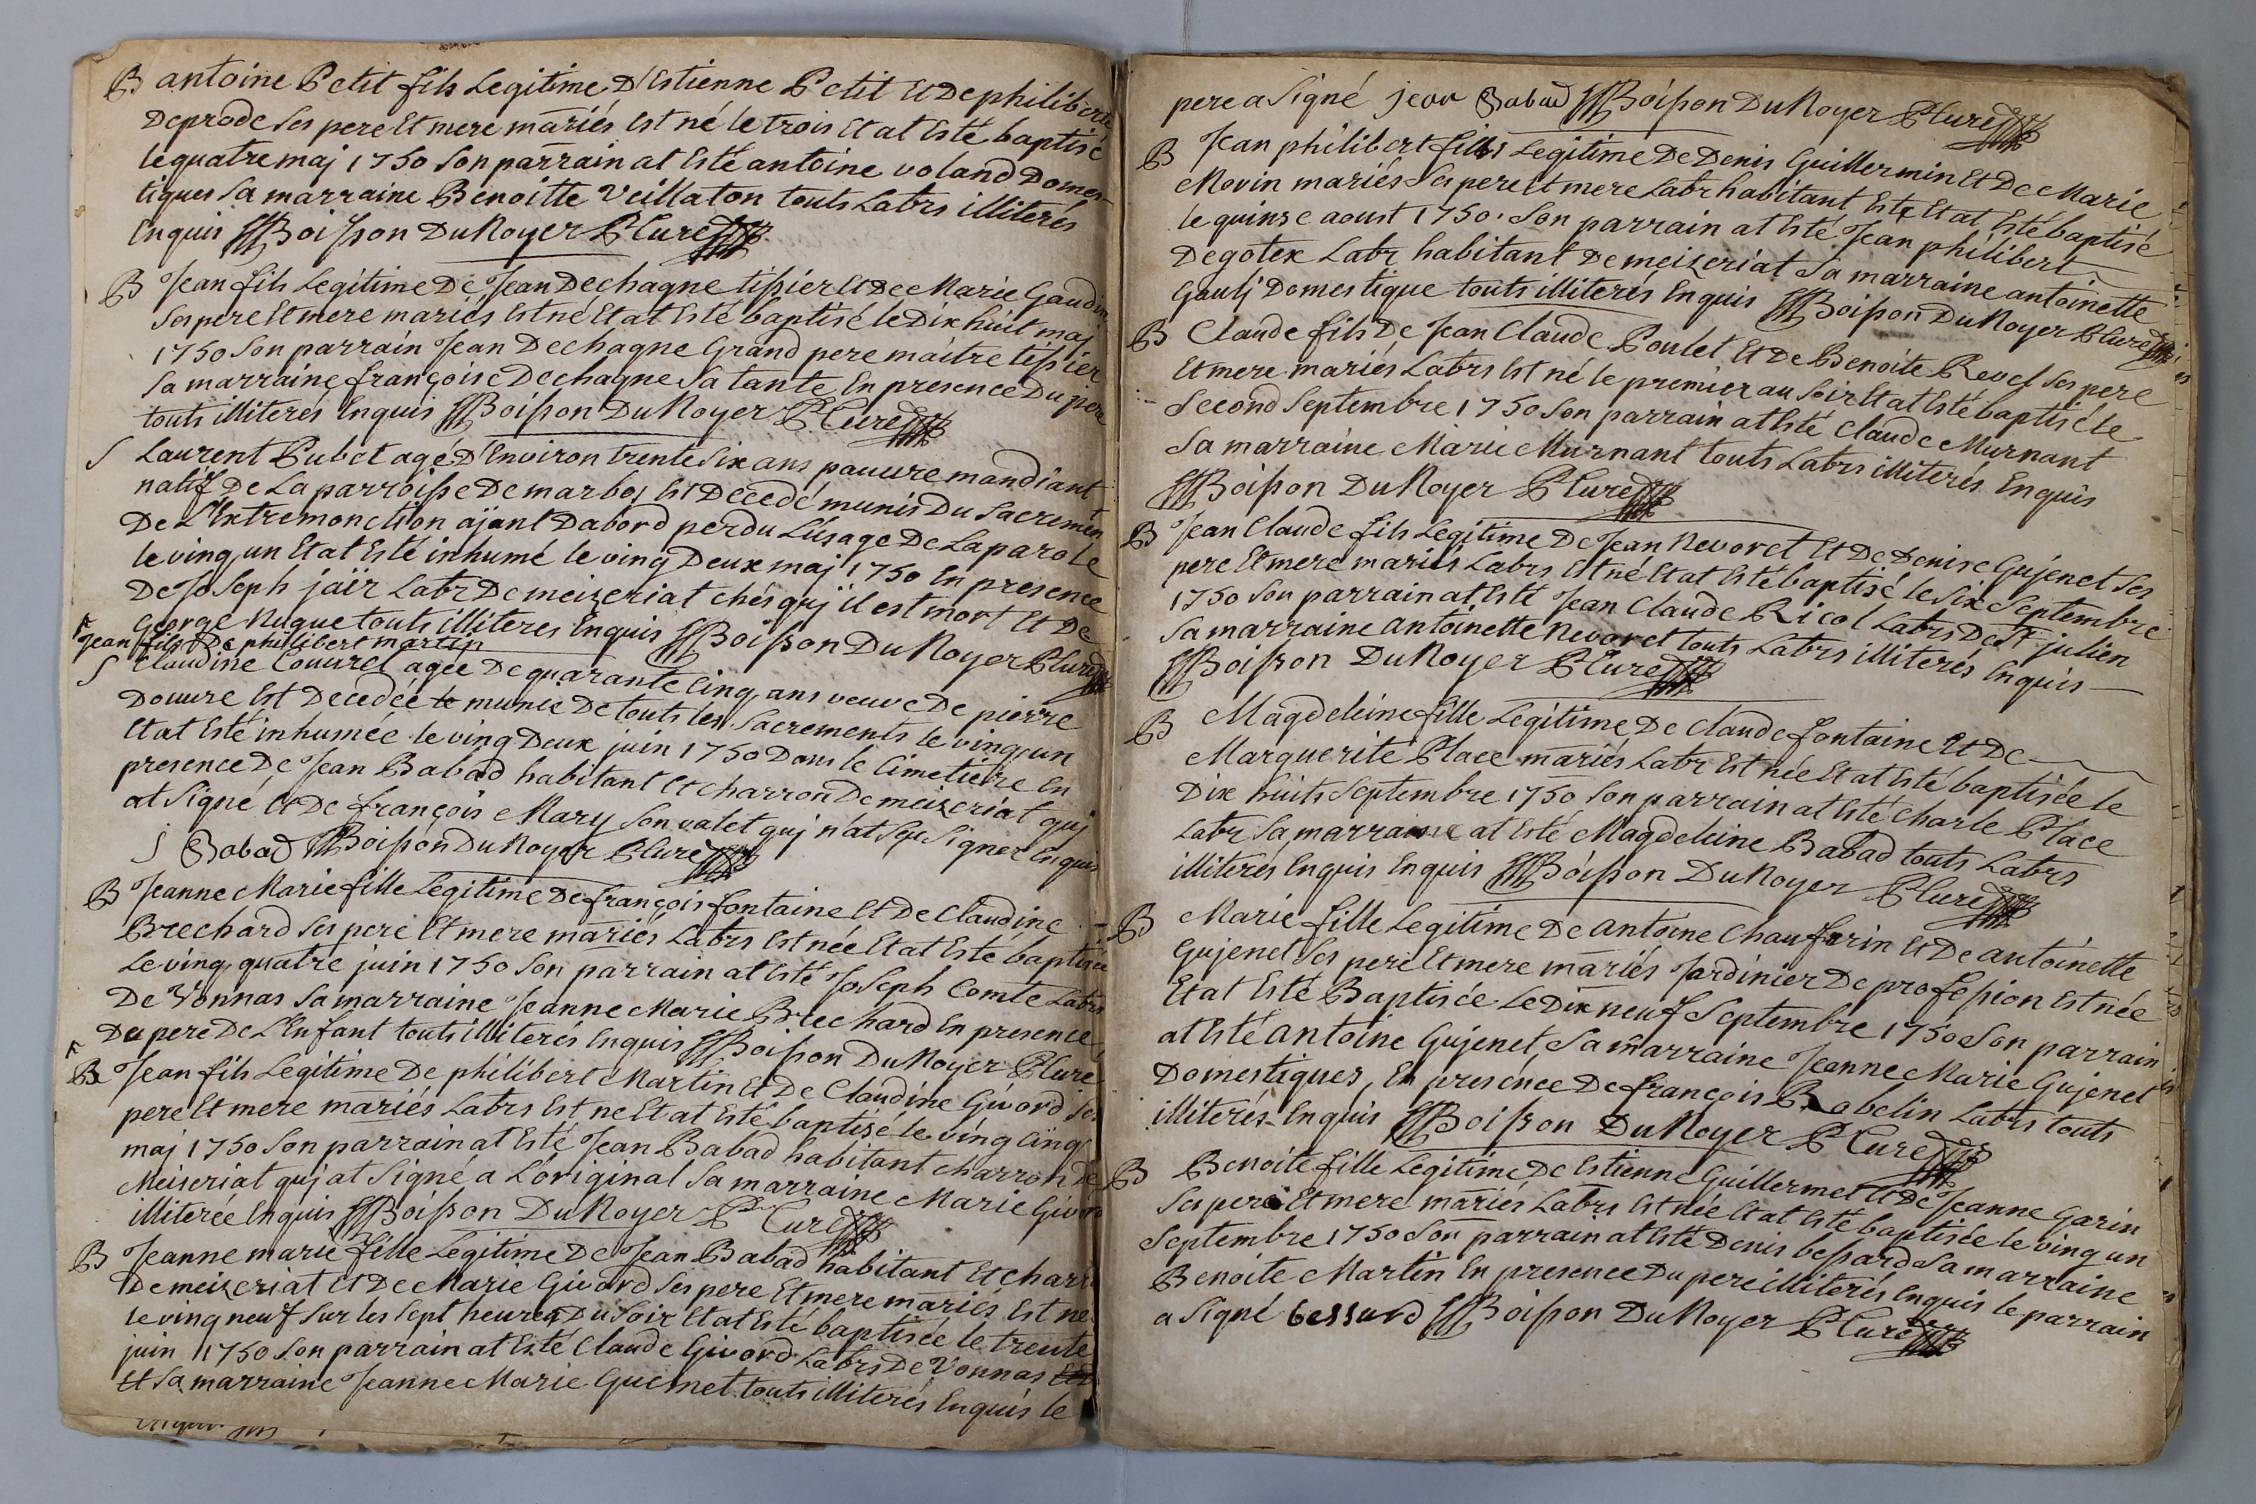 B antoine Petit fils Legitime D'Estienne Petit Et De philiberte
Deprode ses pere Et mere mariés Est né le trois Et at Esté baptisé
le quatre maj 1750 son parrain at Esté antoine voland Domes-
tiques sa marraine Benoitte Veillaton touts Labrs illiterés
Enquis Boisson Du Noyer P Curé
B Jean fils Legitime De Jean Dechagne tissier Et De Marie Gaudin
ses pere Et mere mariés Est né Et at Esté baptisé le Dix huit maj
1750 son parrain Jean Dechagne Grand pere maitre tissier
sa marraine françoise Dechagne sa tante En presence Du pere
touts illiterés Enquis Boisson Du Noyer P Curé
S Laurent Pubet agé D'Environ trente six ans pauvre mandiant
natif De La parroisse De marboz Est Decedé munis Du sacrement
De L'Extremonction aÿant Dabord perdu L'usage De La parole
le vingt un Et at Esté inhumé le ving Deux maj 1750 En presence
De Joseph jaïr Labr De meizeriat chés quj il est mort Et De
George Nugue touts illiteres Enquis Boisson Du Noyer P Curé
Jean fils De philibert martin
S Claudine Couvret agée De quarante Cinq ans veuve De pierre
Douvre Est Decedée le munie De touts les sacrements le ving un
Et at Esté inhumée le ving Deux juin 1750 Dans le Cimetiere En
presence De Jean Babad habitant Et charron De meizeriat quj
at signé Et De françois Mary son valet quj n'at sçu signer Enquis
J Babad Boisson Du Noyer P Curé
B Jeanne Marie fille Legitime De françois fontaine Et De Claudine
Brechard ses pere Et mere mariés Labrs Est née Et at Esté baptisée
Le ving quatre juin 1750 son parrain at Esté Joseph Comte Labrs
De Vonnas sa marraine Jeanne Marie Brechard En presence
Du pere De L'Enfant touts illiterés Enquis Boisson Du Noyer P Curé
B Jean fils Legitime De philibert Martin Et De Claudine Givord ses
pere Et mere mariés Labrs Est né Et at Esté baptisé le ving cinq
maj 1750 son parrain at Esté Jean Babad habitant charron De
Meiseriat quj at signé a L'original sa marraine Marie Givord
illiterée Enquis Boisson Du Noyer P Curé
B Jeanne marie fille Legitime De Jean Babad habitant Et charr
De meizeriat Et De Marie Givord ses pere Et mere mariés Est née
le ving neuf sur les sept heures Du soir Et at Esté baptisée le trente
juin 1750 son parrain at Esté Claude Givord Labrs De Vonnas
Et sa marraine Jeanne Marie Guemet touts illiterés Enquis le
pere a signé jean Babad Boisson Du Noyer P Curé
B Jean philibert fils Legitime De Denis Guillermin Et De Marie
Movin mariés ses pere Et mere Labr habitant Este Et at Esté baptisé
le quinse aoust 1750. son parrain at Esté Jean philibert
Degotex Labr habitant De meizeriat sa marraine antoinette
Goulj Domestique touts illiterés Enquis Boisson Du Noyer P Curé
B Claude fils De Jean Claude Poulet Et De Benoite Revel ses pere
Et mere mariés Labrs Est né le premier au soir Et at Esté baptisé le
second septembre 1750 son parrain at Esté Claude Murnant
sa marraine Marie Murnant touts Labrs illiterés Enquis
Boisson Du Noyer P Curé
B Jean Claude fils Legitime De Jean Nevoret Et De Denise Gujenet ses
pere Et mere mariés Labrs Est né Et at Esté baptisé le six septembre
1750 son parrain at Esté Jean Claude Ricol Labrs De St julien
sa marraine antoinette Nevoret touts Labrs illiterés Enquis
Boisson Du Noyer P Curé
B Magdeleine fille Legitime De Claude fontaine Et De
Marguerite Place mariés Labr Est née Et at Esté baptisée le
Dix huits septembre 1750 son parrain at Esté Charle Place
Labr sa marraine at Esté Magdeleine Babad touts Labrs
illiterés Enquis Enquis Boisson Du Noyer P Curé
B Marie fille Legitime De antoine Chaufurin Et De antoinette
Gujenet ses pere Et mere mariés Jardinier De profession Est née
Et at Esté Baptisée Le Dix neuf septembre 1750 son parrain
at Esté antoine Gujenet, sa marraine Jeanne Marie Gujenet
Domestiques, En presence De françois Robelin Labrs touts
illiterés Enquis Boisson Du Noyer P Curé
B Benoite fille Legitime De Estienne Guillermet Et De Jeanne Garin
ses pere Et mere mariés Labrs Est née Et at Esté baptisée le ving un
septembre 1750 son parrain at Esté Denis bessard sa marraine
Benoite Martin En presence Du pere illiterés Enquis le parrain
a signé bessard Boisson Du Noyer P Curé